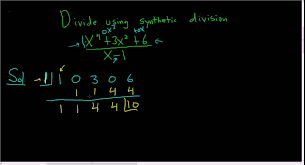 Divide using synthetic division
0x³ 0x
1x⁴+3x²+6
x-1
Sol → 1| 1 0 3 0 6
1 1 4 4
1 1 4 4 |10